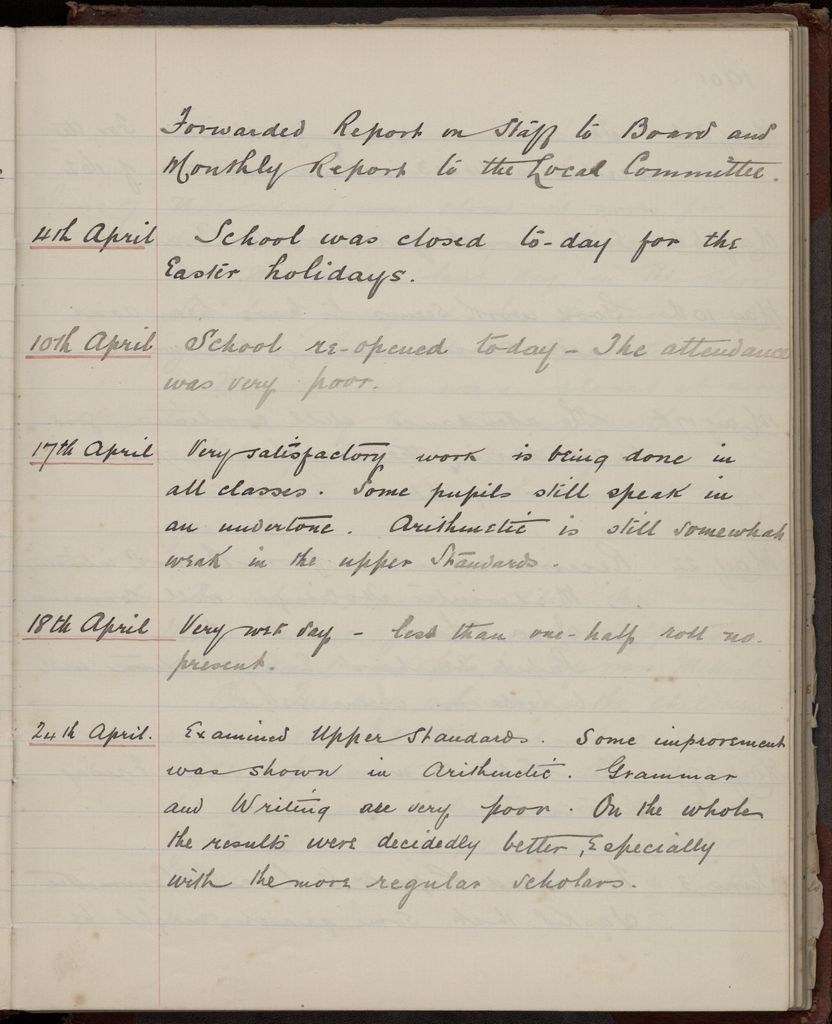 Forwarded Report on Staff to Board and
Monthly Report to the Local Committee.
4th April School was closed to-day for the
Easter holidays.
10th April School re-opened today - The attendance
was very poor.
17th April Very satisfactory work is being done in
all classes. Some pupils still speak in
an undertone. Arithmetic is still somewhat
weak in the upper Standards.
18th April Very wet day - less than one-half roll no.
present.
24th April. Examined Upper Standards. Some improvement
was shown in Arithmetic. Grammar
and Writing are very poor. On the whole
the results were decidedly better, Especially
with the more regular scholars.